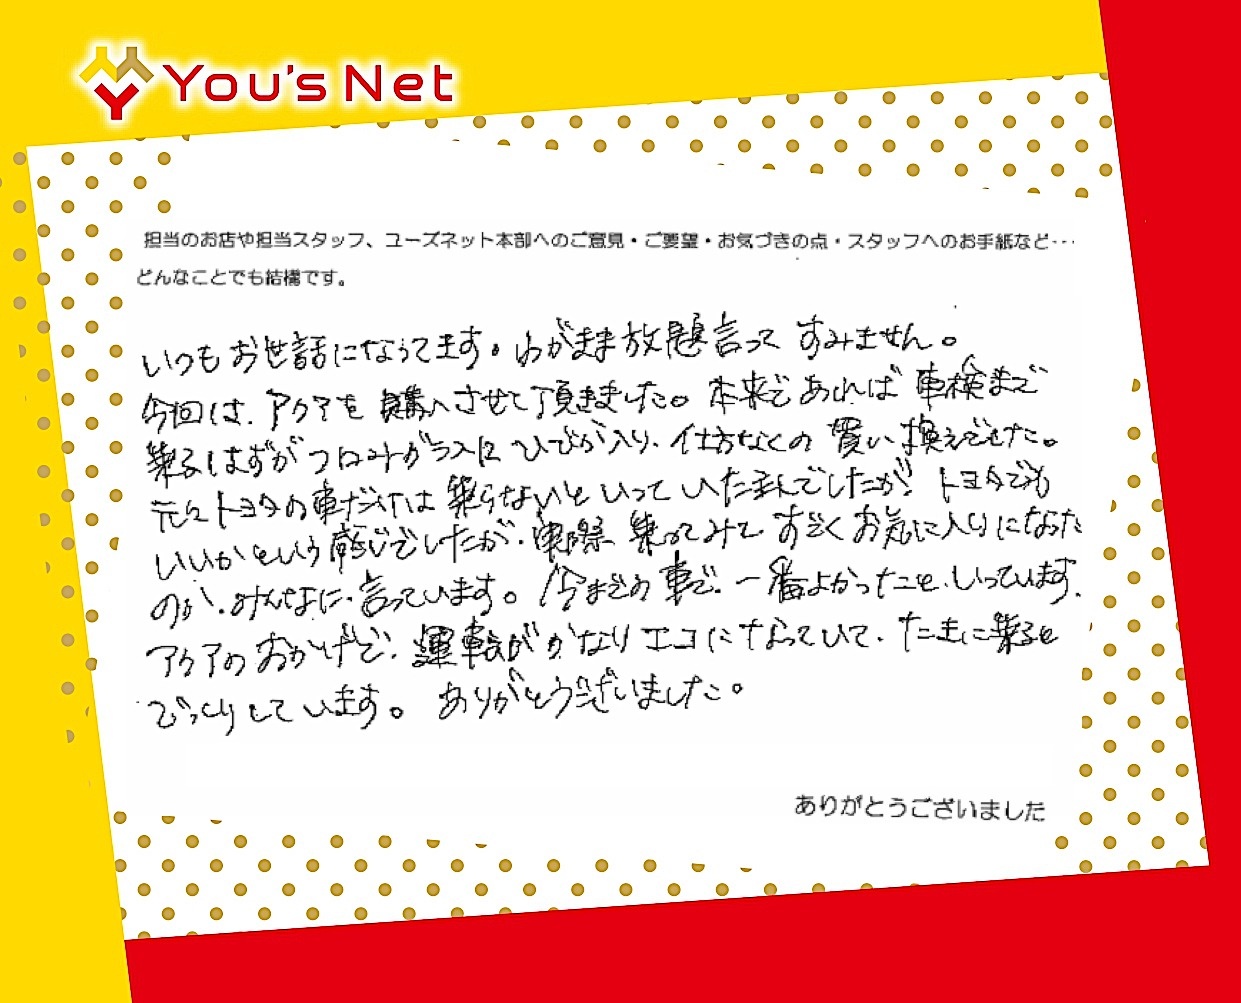 You's Net
担当のお店や担当スタッフ、ユーズネット本部へのご意見・ご要望・お気づきの点・スタッフへのお手紙など…
どんなことでも結構です。
いつもお世話になってます。わがまま放題言って すみません。
今回は、アクアを 購入させて頂きました。本来であれば 車検まで
乗るはずが フロントガラスに ひびが入り、仕方なくの 買い換えでした。
元々トヨタの車だけは 乗らないと いって いたまんでしたが! トヨタでも
いいかという感じでしたが、実際 乗ってみて すごく お気に入りになった
のか、みんなに、言っています。今までの 車で、一番よかったこと、いっています。
アクアの おかげで、運転が かなり エコに なっていて、たまに乗ると
びっくりしています。ありがとうございました。
ありがとうございました